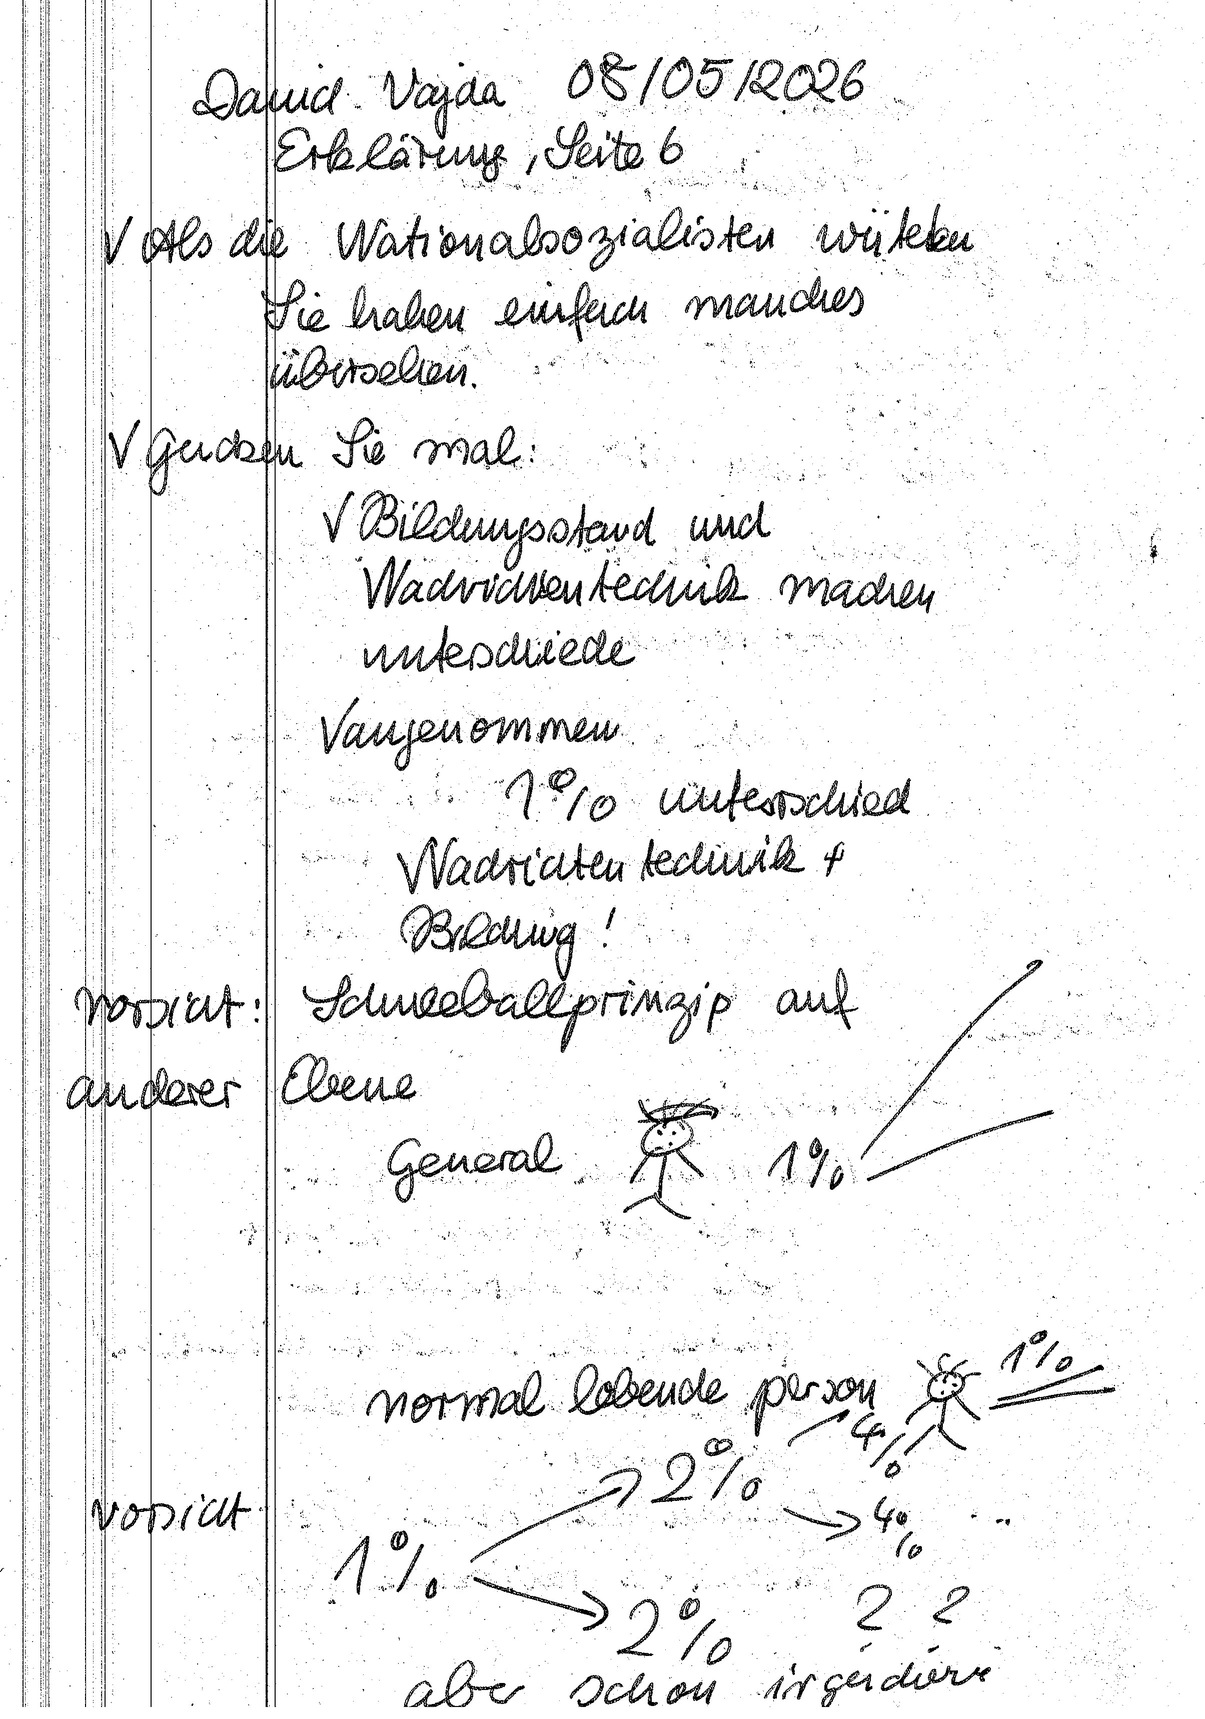 David Vajda 08/05/2026
Erklärung, Seite 6
√ Als die Nationalsozialisten wüteten
Sie haben einfach manches
übersehen.
√ Gucken Sie mal:
√ Bildungsstand und
Nachrichtentechnik machen
unterschiede
√ angenommen
1% unterschied
Nachrichtentechnik +
Bildung!
Vorsicht: Schneeballprinzip auf
anderer Ebene
General 1%
normal lebende person 1%
4%
2%
vorsicht
4% ...
1%
2 2
2%
aber schon irgendwie